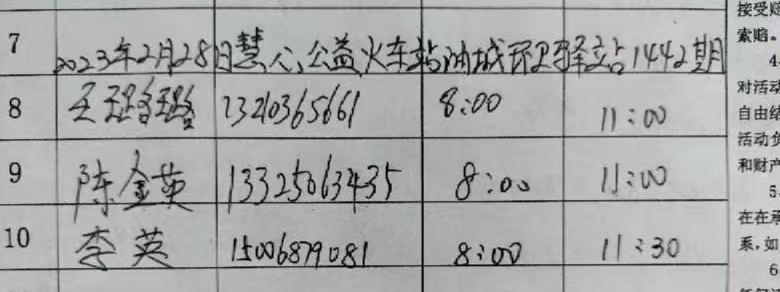 7 2023年2月28日慧心公益火车站油城环卫驿站1442期
8 王璐璐 13210365661 8:00 11:00
9 陈金英 13325063435 8:00 11:00
10 李英 15006879081 8:00 11:30
接受
索赔。
4
对活动
自由结
活动负
和财产
5
在在承
系,如
6